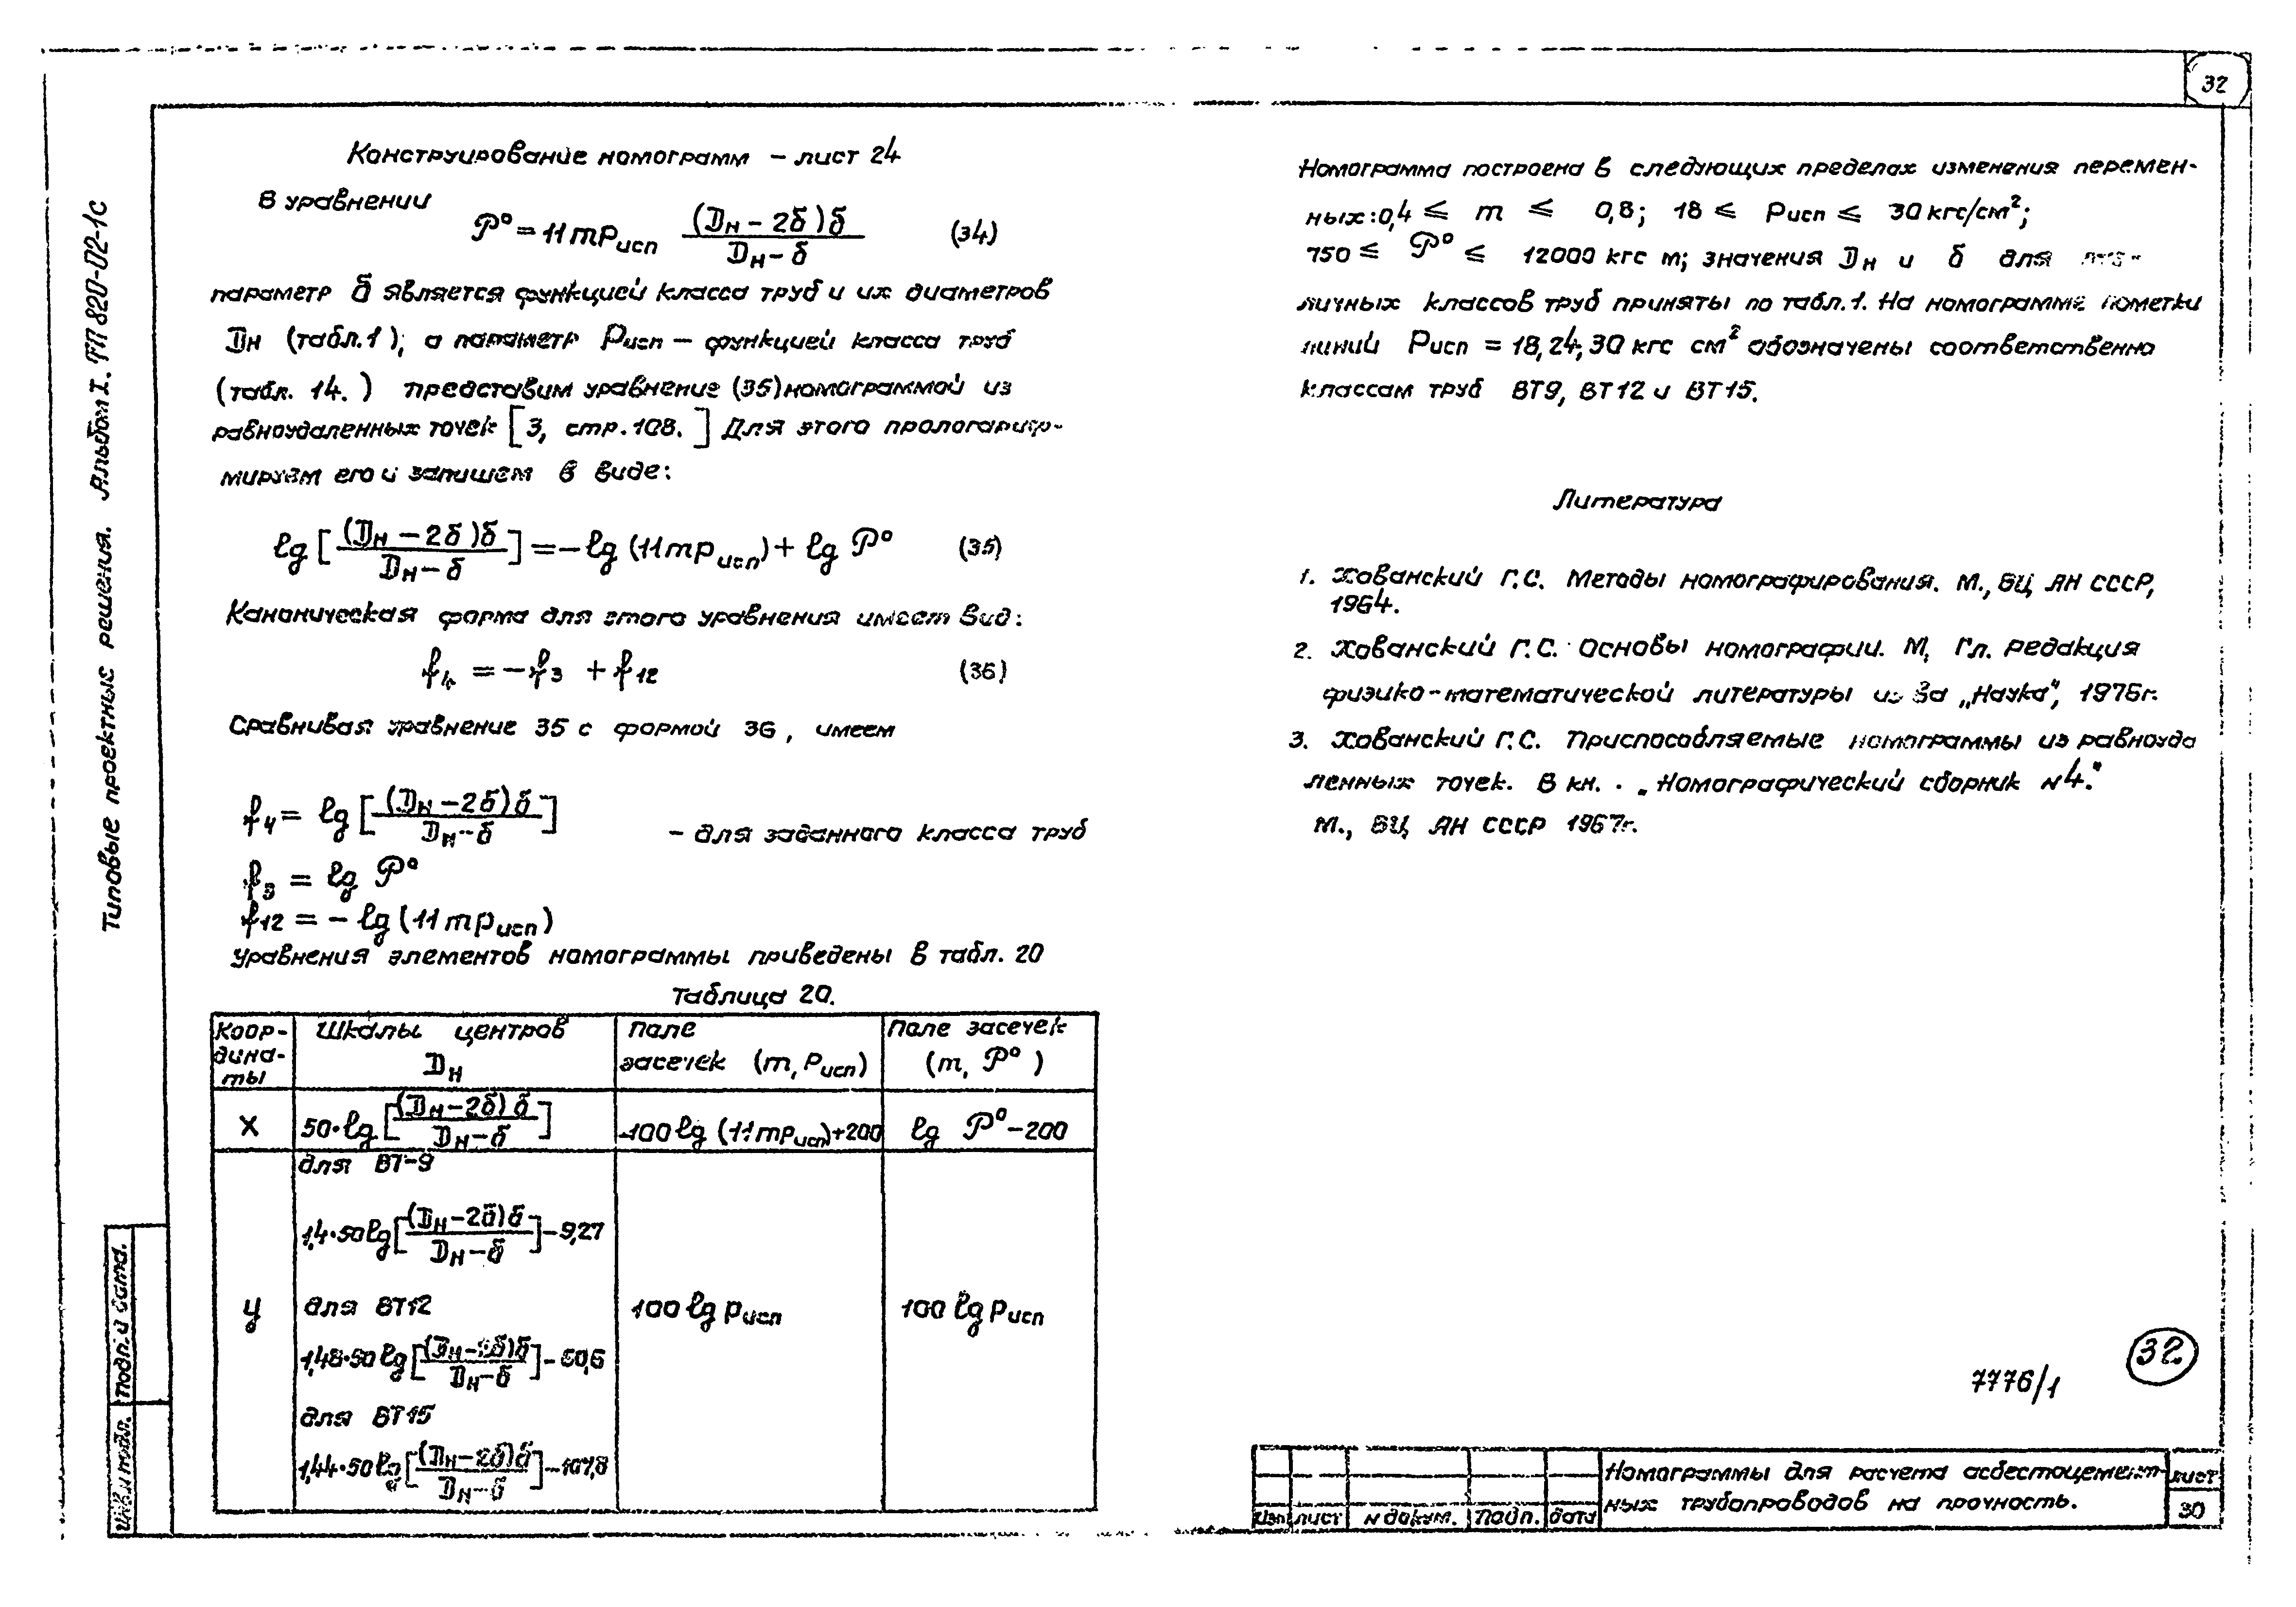 32
Типовые проектные решения. Альбом I. ТП 820-02-1с
Конструирование номограмм – лист 24
В уравнении
𝒫° = 11 m Pисп (Dн – 2δ)δ / Dн – δ (34)
параметр δ является функцией класса труб и их диаметров
Dн (табл. 1); а параметр Pисп – функцией класса труб
(табл. 14.) представим уравнение (35) номограммой из
равноудаленных точек [3, стр. 108.] Для этого прологариф-
мируем его и запишем в виде:
lg [(Dн – 2δ)δ / Dн – δ] = – lg (11 m pисп) + lg 𝒫° (35)
Каноническая форма для этого уравнения имеет вид:
f4 = – f3 + f12 (36)
Сравнивая уравнение 35 с формой 36, имеем
f4 = lg [(Dн – 2δ)δ / Dн – δ] – для заданного класса труб
f3 = lg 𝒫°
f12 = – lg (11 m pисп)
Уравнения элементов номограммы приведены в табл. 20
Таблица 20.
Коор-
дина-
ты
Шкалы центров
Dн
Поле
засечек (m, Pисп)
Поле засечек
(m, 𝒫°)
X
50·lg [(Dн – 2δ)δ / Dн – δ]
-100 lg (11 m pисп)+200
lg 𝒫° – 200
У
для ВТ-9
1,4·50 lg [(Dн – 2δ)δ / Dн – δ] – 9,27
для ВТ12
1,48·50 lg [(Dн – 2δ)δ / Dн – δ] – 60,6
для ВТ15
1,44·50 lg [(Dн – 2δ)δ / Dн – δ] – 107,8
100 lg pисп
100 lg pисп
Номограмма построена в следующих пределах изменения перемен-
ных: 0,4 ≤ m ≤ 0,8; 18 ≤ Pисп ≤ 30 кгс/см²;
750 ≤ 𝒫° ≤ 12000 кгс м; значения Dн и δ для
личных классов труб приняты по табл. 1. На номограмме пометки
линий Pисп = 18, 24, 30 кгс см² обозначены соответственно
классам труб ВТ9, ВТ12 и ВТ15.
Литература
1. Хованский Г.С. Методы номографирования. М., ВЦ АН СССР,
1964.
2. Хованский Г.С. Основы номографии. М, Гл. редакция
физико-математической литературы из-ва „Наука", 1976г.
3. Хованский Г.С. Приспособляемые номограммы из равноуда
ленных точек. В кн. „Номографический сборник N4."
М., ВЦ АН СССР 1967г.
32
7776/1
Номограммы для расчета асбестоцемент-
ных трубопроводов на прочность.
Лист
30
Изм лист N докум. Подп. дата
Инв. N подл.
Подп. и дата.